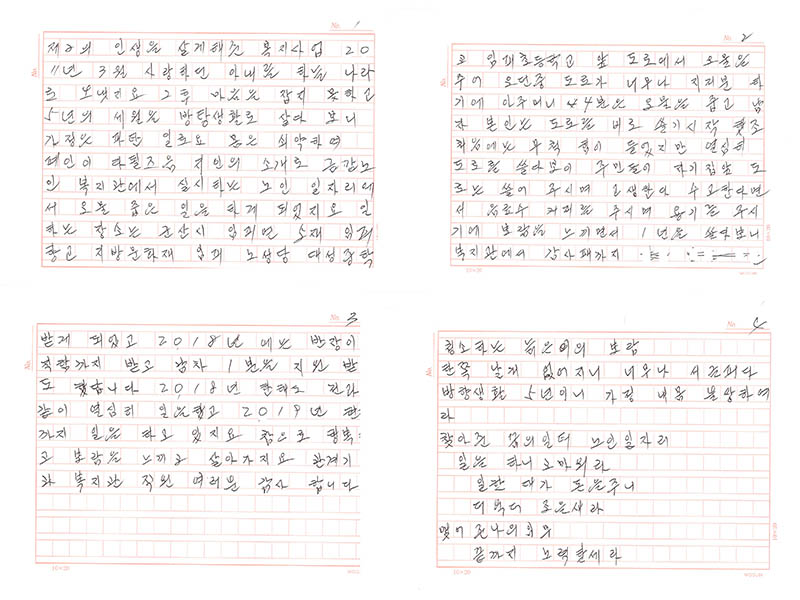 No. 1
제2의 인생을 살게해준 복지사업 20
11년 3월 사랑하던 아내를 하늘 나라
로 보냈지요 그후 마음을 잡지 못하고
5년의 세월을 방탕생활로 살아 보니
가정은 파탄 일로요 몸은 쇠약하여
폐인이 다될즈음 지인의 소개로 금강노
인 복지관에서 실시하는 노인 일자리에
서 오물 줍은 일을 하게 되었지요 일
하는 장소는 군산시 임피면 소재 임피
향교 지방문화재 임피 노성당 대성중학
10×20
No. 2
교 임피초등학교 앞 도로에서 오물을
주어 오던중 도로가 너무나 지저분 하
기에 아주머니 44분은 오물을 줍고 남
자 본인은 도로를 비로 쓸기시작 했죠
처음에는 무척 힘이 들었지만 열심히
도로를 쓸다보이 주민들이 자기집앞 도
로는 쓸어 주시며 고생한다 수고한다면
서 음료수 커피를 주시며 용기를 주시
기에 보람을 느끼면서 1년을 쓸다보니
복지관에서 감사패까지
10×20
No. 3
받게 되었고 2018년에는 반장이
직책까지 받고 남자 1분을 지원 받
도 했습니다 2018년 한해도
같이 열심히 일을하고 2019년
까지 일을 하고 있지요 참으로 행복
고 보람을 느끼고 살아가지요 관계기
과 복지관 직원 여러분 감사 합니다
10×20
No. 4
청소하는 늙은이의 보람
한쪽 날개 없어지니 너무나 서글퍼다
방항생활 5년이니 가정 내몸 불쌍하여
라
찾아준 삶의일터 노인일자리
일을 하니 고마워라
일한 대가 돈을주니
더욱더 좋은새라
맺어 준나의의무
끝까지 노력할세라
10×20